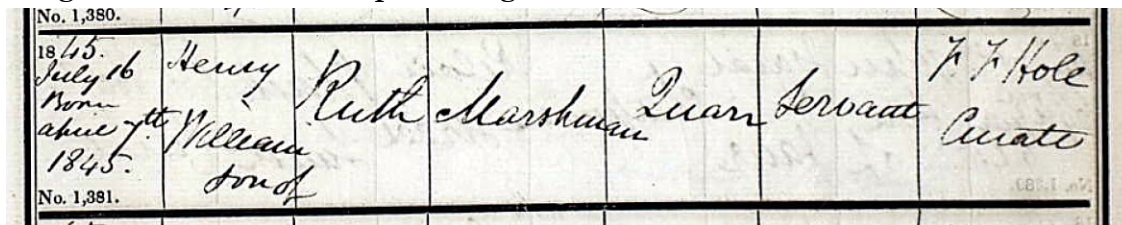 No. 1,380.
1845.
July 16
Born
april 7th
1845.
No. 1,381.
Henry
William
son of
Ruth
Marshman
Quarr
Servant
F. F Hole
Curate